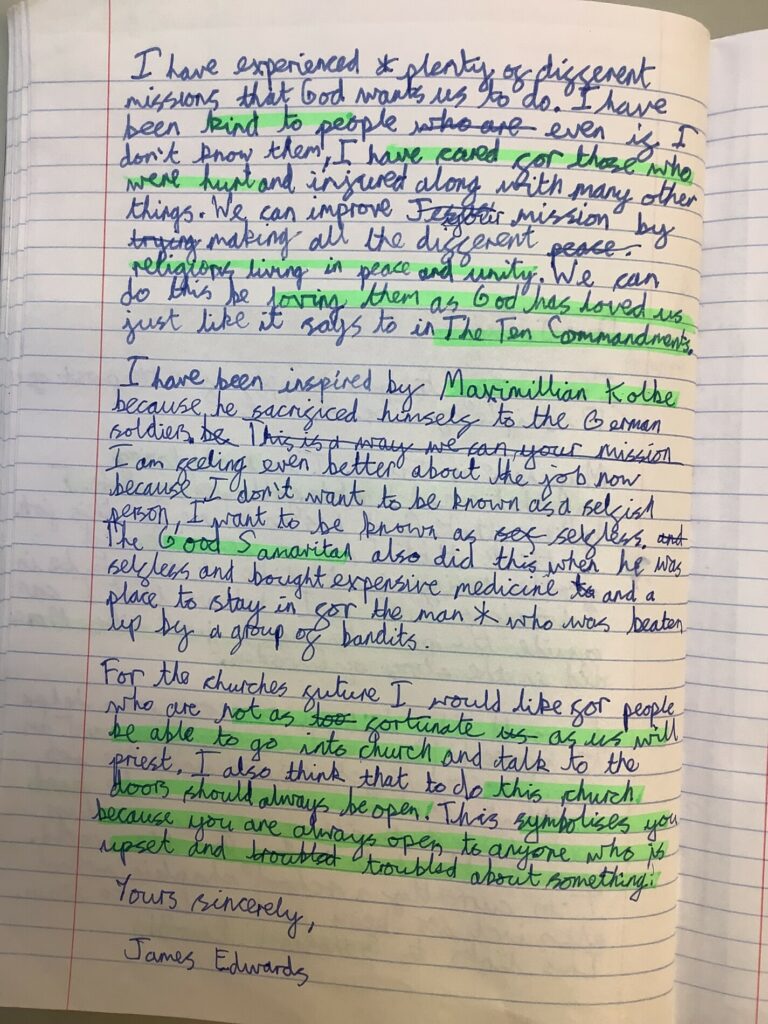 I have experienced * plenty of different
missions that God wants us to do. I have
been kind to people who are even if I
don't know them, I have cared for those who
were hurt and injured along with many other
things. We can improve mission by
trying making all the different peace.
religions living in peace and unity. We can
do this be loving them as God has loved us
just like it says to in The Ten Commandments.
I have been inspired by Maximillian Kolbe
because he sacrificed himself to the German
soldier. be This is a way we can, your mission
I am feeling even better about the job now
because I don't want to be known as a selfish
person, I want to be known as sef selfless. and
The Good Samaritan also did this when he was
selfless and bought expensive medicine to and a
place to stay in for the man * who was beaten
up by a group of bandits.
For the churches future I would like for people
who are not as too fortunate us as us will
be able to go into church and talk to the
priest. I also think that to do this church
doors should always be open. This symbolises you
because you are always open to anyone who is
upset and troubled troubled about something.
Yours sincerely,
James Edwards